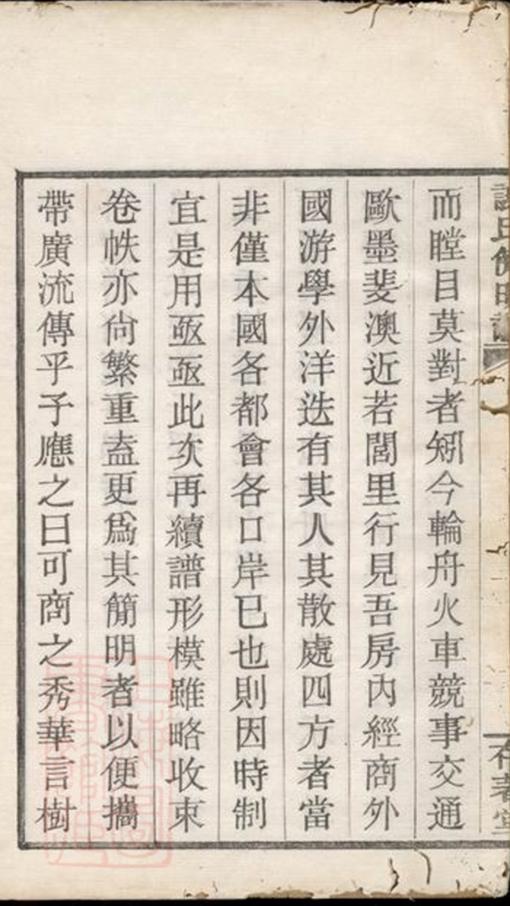 氏簡明
存著堂
而瞠目莫對者矧今輪舟火車競事交通
歐墨斐澳近若閭里行見吾房內經商外
國游學外洋迭有其人其散處四方者當
非僅本國各都會各口岸已也則因時制
宜是用亟亟此次再續譜形模雖略收束
卷帙亦尙繁重盍更爲其簡明者以便攜
帶廣流傳乎予應之曰可商之秀華言樹